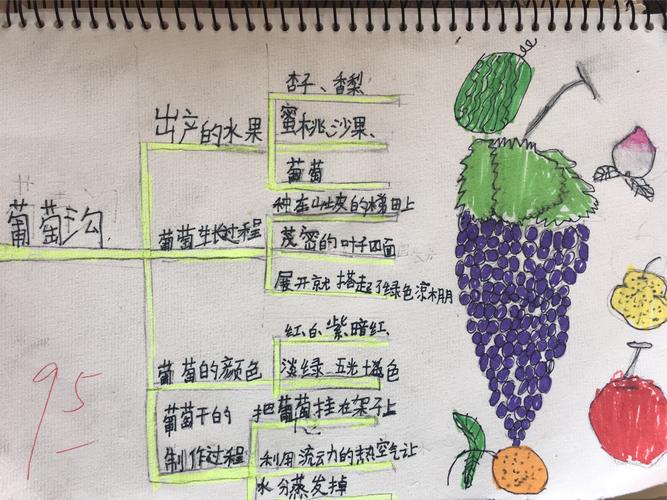 葡萄沟
出产的水果
杏子、香梨
蜜桃、沙果、
葡萄
葡萄生长过程
种在山坡的梯田上
茂密的叶子四面
展开就搭起了绿色凉棚
葡萄的颜色
红白紫暗红、
淡绿五光十色
葡萄干的
制作过程
把葡萄挂在架子上
利用流动的热空气让
水分蒸发掉
95